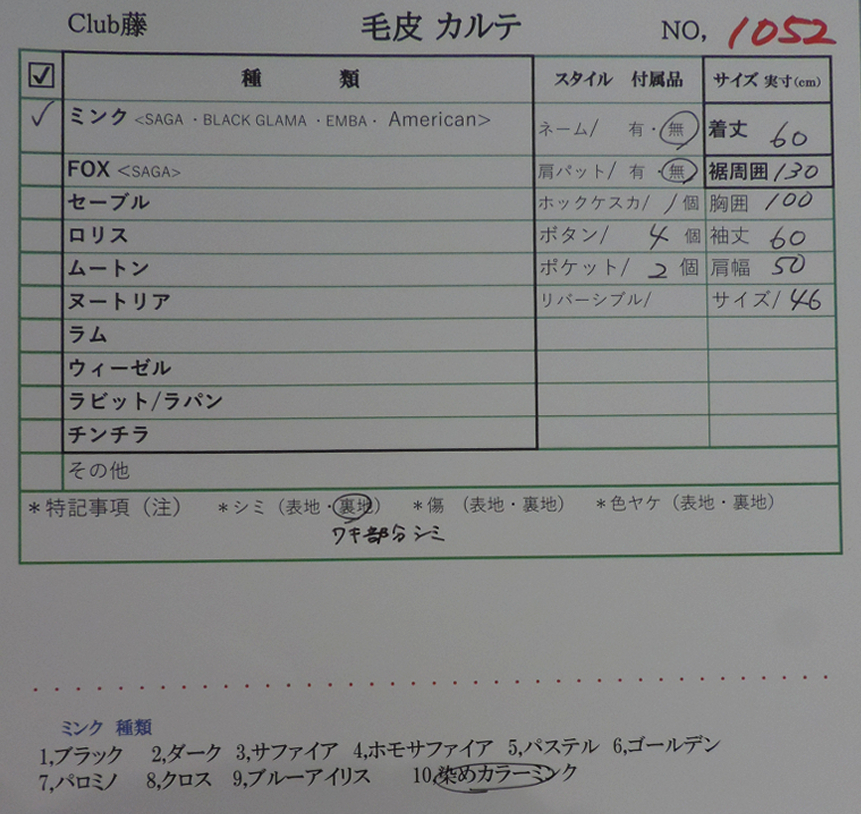 Club藤 毛皮 カルテ NO, 1052
☑ 種 類 スタイル 付属品 サイズ 実寸(cm)
✓ ミンク <SAGA ・BLACK GLAMA ・EMBA・ American> ネーム/ 有・無 着丈 60
FOX <SAGA> 肩パット/ 有・無 裾周囲 130
セーブル ホックケスカ/ 1個 胸囲 100
ロリス ボタン/ 4 個 袖丈 60
ムートン ポケット/ 2 個 肩幅 50
ヌートリア リバーシブル/ サイズ/ 46
ラム
ウィーゼル
ラビット/ラパン
チンチラ
その他
*特記事項(注) *シミ(表地・裏地) *傷 (表地・裏地) *色ヤケ(表地・裏地)
ワキ部分シミ
ミンク 種類
1,ブラック 2,ダーク 3,サファイア 4,ホモサファイア 5,パステル 6,ゴールデン
7,パロミノ 8,クロス 9,ブルーアイリス 10,染めカラーミンク